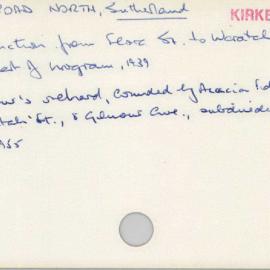 ORD NORTH, Sutherland
KIRKE
nction from Flora St. to Waratah
part of program, 1939
's orchard, bounded by Acacia Rd
St., & Gilmour Ave., subdivided
1955